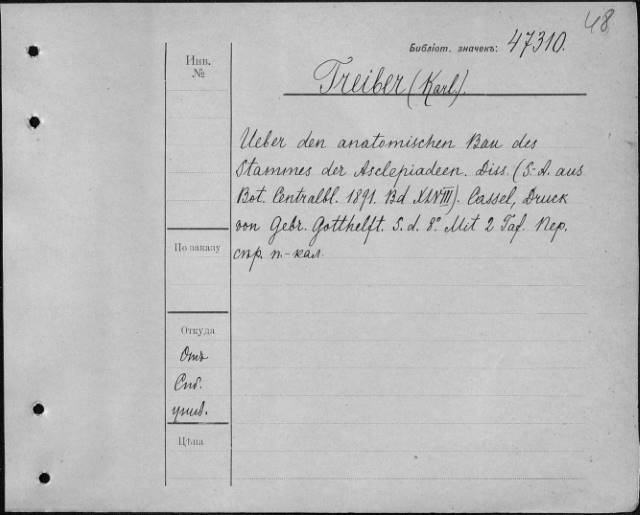 48
Библіот. значекъ: 47310.
Инв.
№
Treiber (Karl).
Ueber den anatomischen Bau des
Stammes der Asclepiadeen. Diss. (S.-A. aus
Bot. Centralbl. 1891. Bd XLVIII). Cassel, Druck
von Gebr. Gotthelft. S. d. 8º. Mit 2 Taf. Пер.
стр. п.-кал.
По заказу
Откуда
Отъ
Спб.
унив.
Цѣна